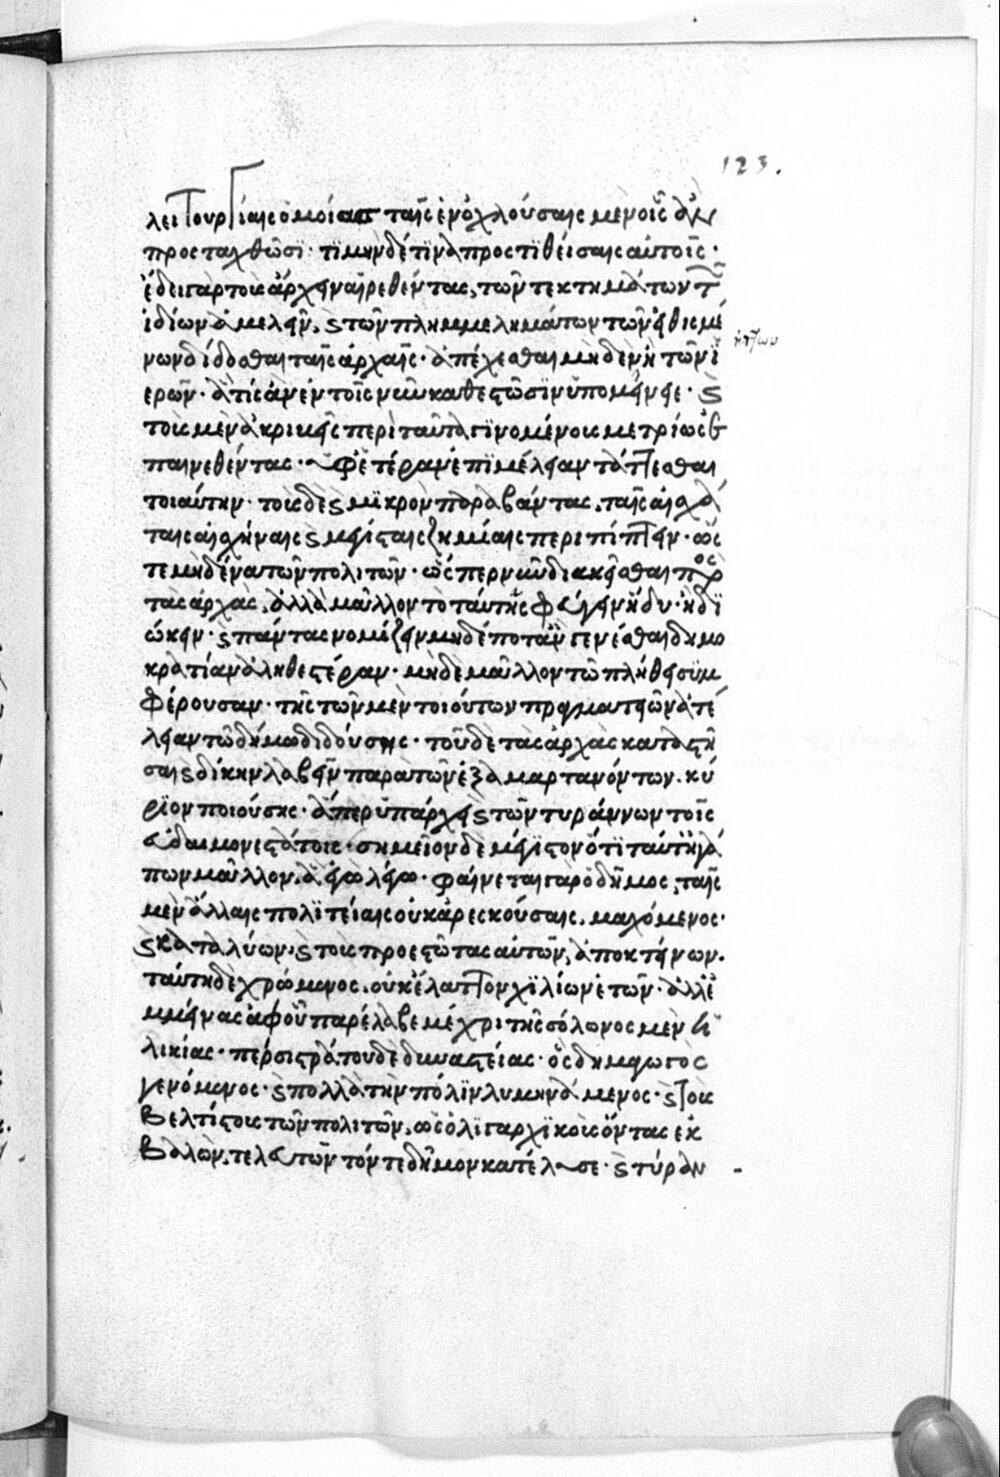 123.
λειτουργίαις ὁμοίας ταῖς ἐνοχλούσαις μὲν οἷς ἂν
προσταχθῶσϊ· τϊμὴν δέ τϊνα προστϊθείσαις αὐτοῖς·
ἔδει γὰρ τοὺς ἄρχειν αἱρεθέντας, τῶν τε κτημάτων τῶν
ἰδίων ἀμελεῖν, καὶ τῶν πλημμελημάτων τῶν εἰθισμέ
νων δίδοσθαι ταῖς ἀρχαῖς· ἀπέχεσθαι μηδὲν ἢ τῶν ϊ
ερῶν· ἅ τις ἂν ἐν τοῖς νῦν καθεστῶσϊν ὑπομείνειε· καὶ
τοὺς μὲν ἀκριβεῖς περὶ ταῦτα γϊνομένους μετρίως ἐ
παινεθέντας· ἐφ' ἑτέραν ἐπϊμέλειαν τάττεσθαι
τοιαύτην· τοὺς δὲ καὶ μϊκρὸν παραβάντας, ταῖς ἐσχά
ταις αἰσχύναις καὶ μεγίσταις ζημίαις περιπίπτειν· ὥς
τε μηδένα τῶν πολιτῶν· ὥσπερ νῦν διακεῖσθαι πρὸς
τὰς ἀρχὰς, ἀλλὰ μᾶλλον τὸ ταύτης φεύγειν ἢ νῦν· ἢ δϊ
ώκειν· καὶ πάντας νομίζειν μηδέποτ' ἂν γενέσθαι δημο
κρατίαν ἀληθεστέραν· μηδὲ μᾶλλον τῶ πλήθει συμ
φέρουσαν· τῆς τῶν μὲν τοιούτων πραγματειῶν ἀτέ
λειαν τῶ δήμω διδούσης· τοῦ δὲ τὰς ἀρχὰς καταστῆ
σαι καὶ δίκην λαβεῖν παρὰ τῶν ἐξαμαρτανόντων. κύ
ρϊον ποιούσης· ἅπερ ὑπάρχει καὶ τῶν τυράννων τοῖς
εὐδαιμονεστάτοις· σημεῖον δὲ μέγϊστον ὅτϊ ταύτην ἠγά
πων μᾶλλον, ἢ ἐγὼ λέγω· φαίνεται γὰρ ὁ δῆμος, ταῖς
μὲν ἄλλαις πολϊτείαις οὐκ ἀρεσκούσαις, μαχόμενος·
καὶ καταλύων, καὶ τοὺς προεστῶτας αὐτῶν, ἀποκτείνων.
ταύτη δὲ χρώμενος, οὐκ ἔλαττον χϊλίων ἐτῶν· ἀλλ' ἐ
μμείνας ἀφ' οὗ παρέλαβε μέχρι τῆς σόλωνος μὲν ἡ
λικίας· πεισιστράτου δὲ δυναστείας· ὃς δημαγωγὸς
γενόμενος· καὶ πολλὰ τὴν πόλϊν λυμηνάμενος· καὶ τοὺς
βελτίστους τῶν πολιτῶν, ὡς ὀλϊγαρχϊκοὺς ὄντας ἐκ
βαλὼν, τελευτῶν τόν τε δῆμον κατέλυσε· καὶ τύραν